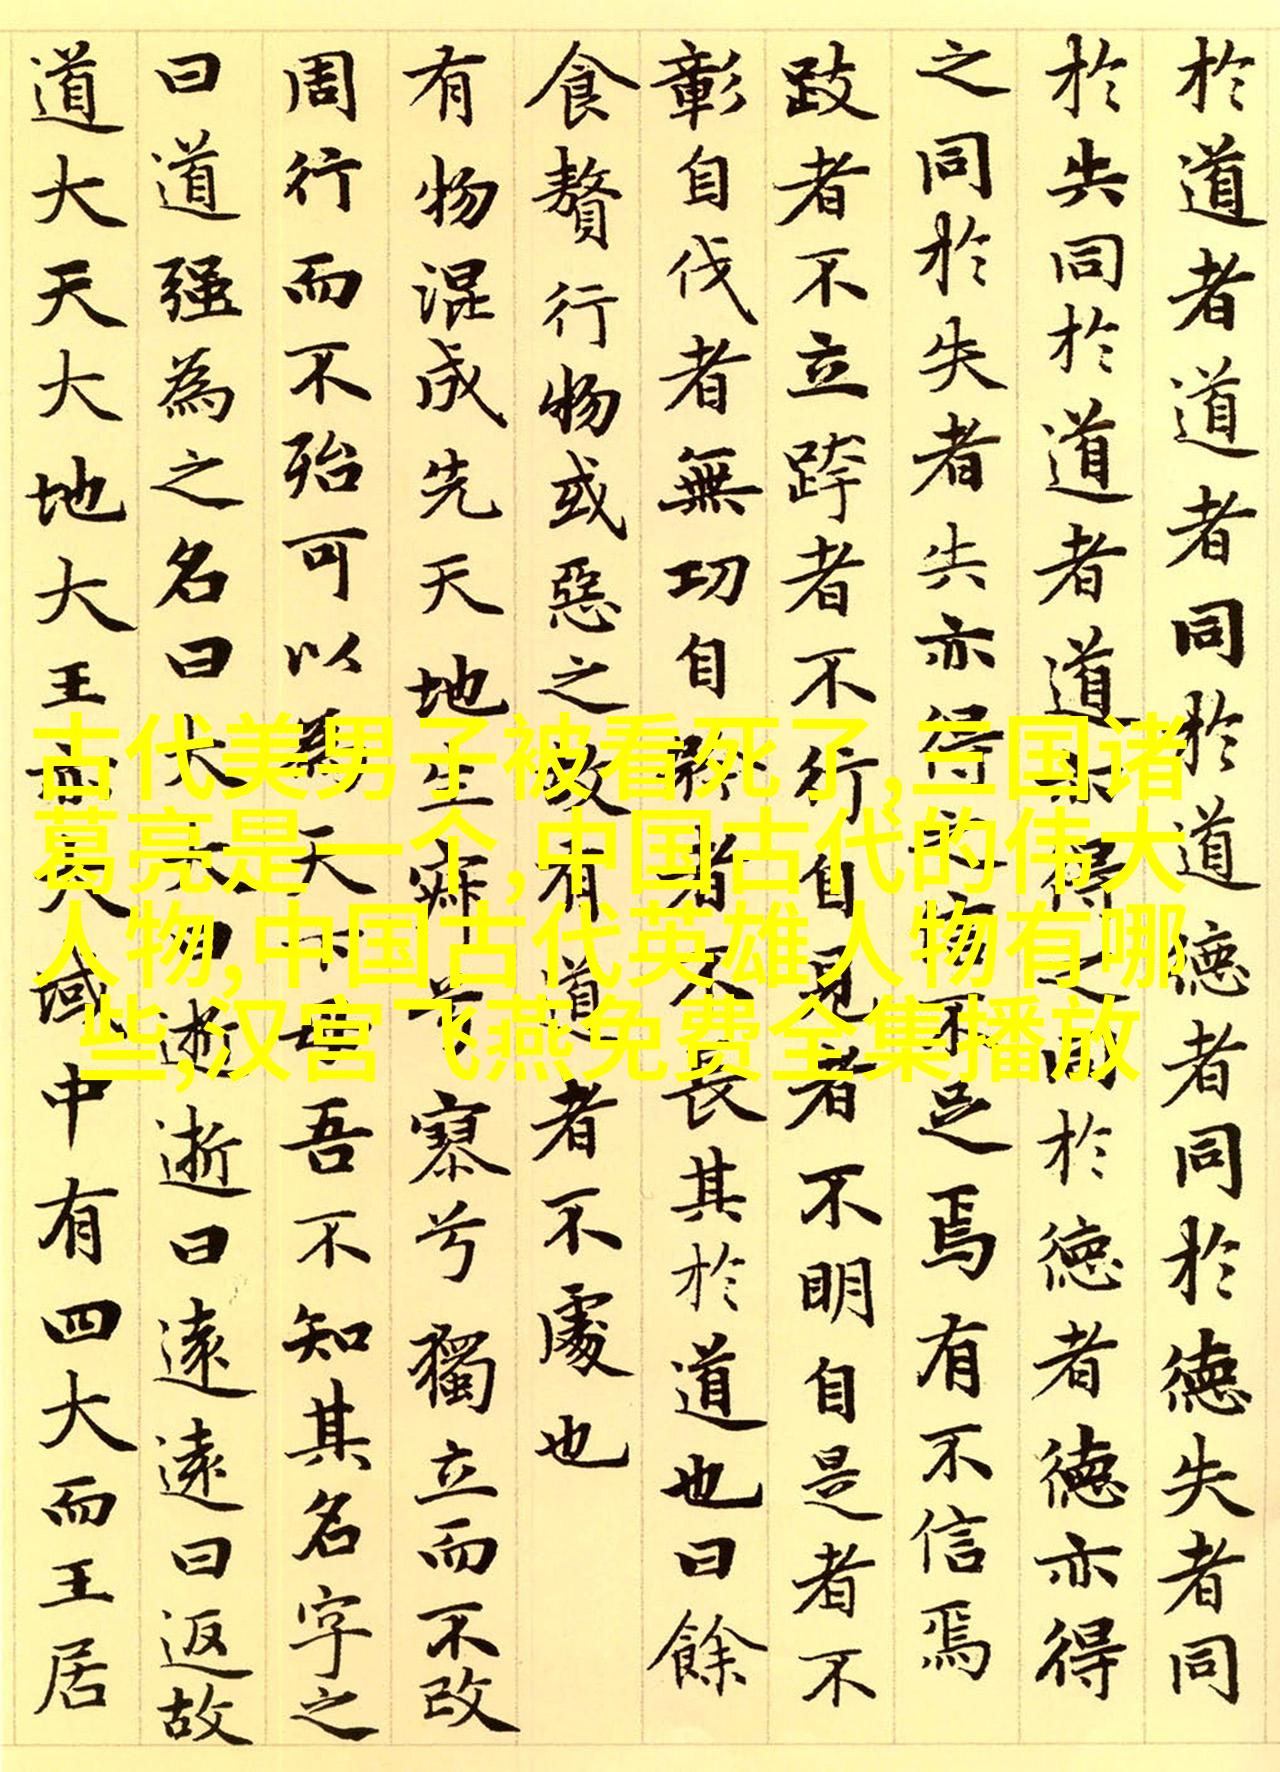 於道者道者同於道德者同於德失者同
於失同於道者道亦得之同於德者德亦得
之同於失者失亦得之信不足焉有不信焉
跂者不立跨者不行自見者不明自是者不
彰自伐者無功自矜者不長其於道也曰餘
食贅行物或惡之故有道者不處也
有物混成先天地生寂兮寥兮獨立而不改
周行而不殆可以為天下母吾不知其名字之
曰道强為之名曰大大曰逝逝曰遠遠曰返故
道大天大地大王亦大域中有四大而王居
古代美男子被看死了,三国诸
葛亮是一个,中国古代的伟大
人物,中国古代英雄人物有哪
些,汉宫飞燕免费全集播放